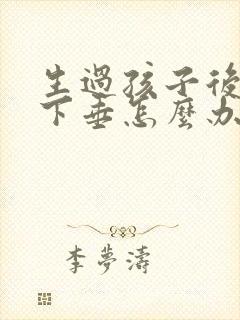 生過孩子後
下垂怎麼办
李夢濤